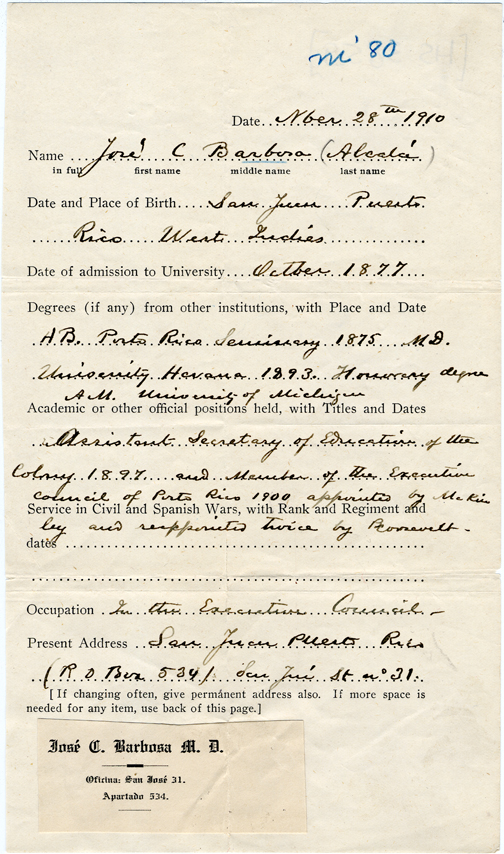 m' 80
Date. Nber 28th 1910
Name José C Barbosa (Alcalá)
in full first name middle name last name
Date and Place of Birth San Juan Puerto
Rico West Indies
Date of admission to University Octber 1877
Degrees (if any) from other institutions, with Place and Date
A.B. Porto Rico Seminary 1875 M.D.
University Havana 1893. Honorary degree
A.M. University of Michigan
Academic or other official positions held, with Titles and Dates
Assistant Secretary of Education of the
Colony 1897 and Member of the Executive
council of Porto Rico 1900 appointed by McKin
Service in Civil and Spanish Wars, with Rank and Regiment and
ley and reappointed twice by Roosevelt -
dates
Occupation In the Executive Council -
Present Address San Juan Puerto Rico
(P.O Box 534) San José St nº 31.
[If changing often, give permanent address also. If more space is
needed for any item, use back of this page.]
José C. Barbosa M. D.
Oficina: San José 31.
Apartado 534.